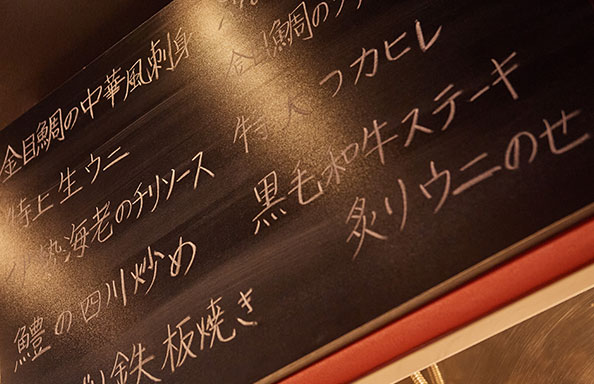 金目鯛の中華風刺身
特上生ウニ
海老のチリソース
鱧の四川炒め
鉄板焼き
金目鯛の
特大フカヒレ
黒毛和牛ステーキ
炙りウニのせ